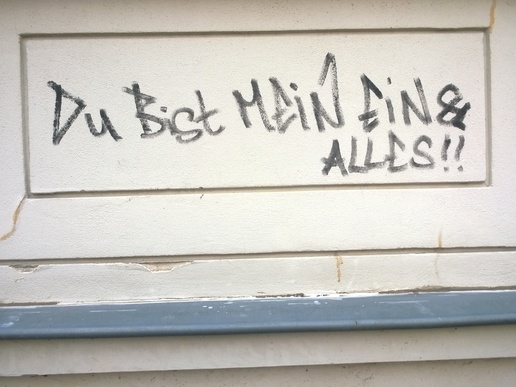 Du Bist MEiN EiN&
ALLES!!